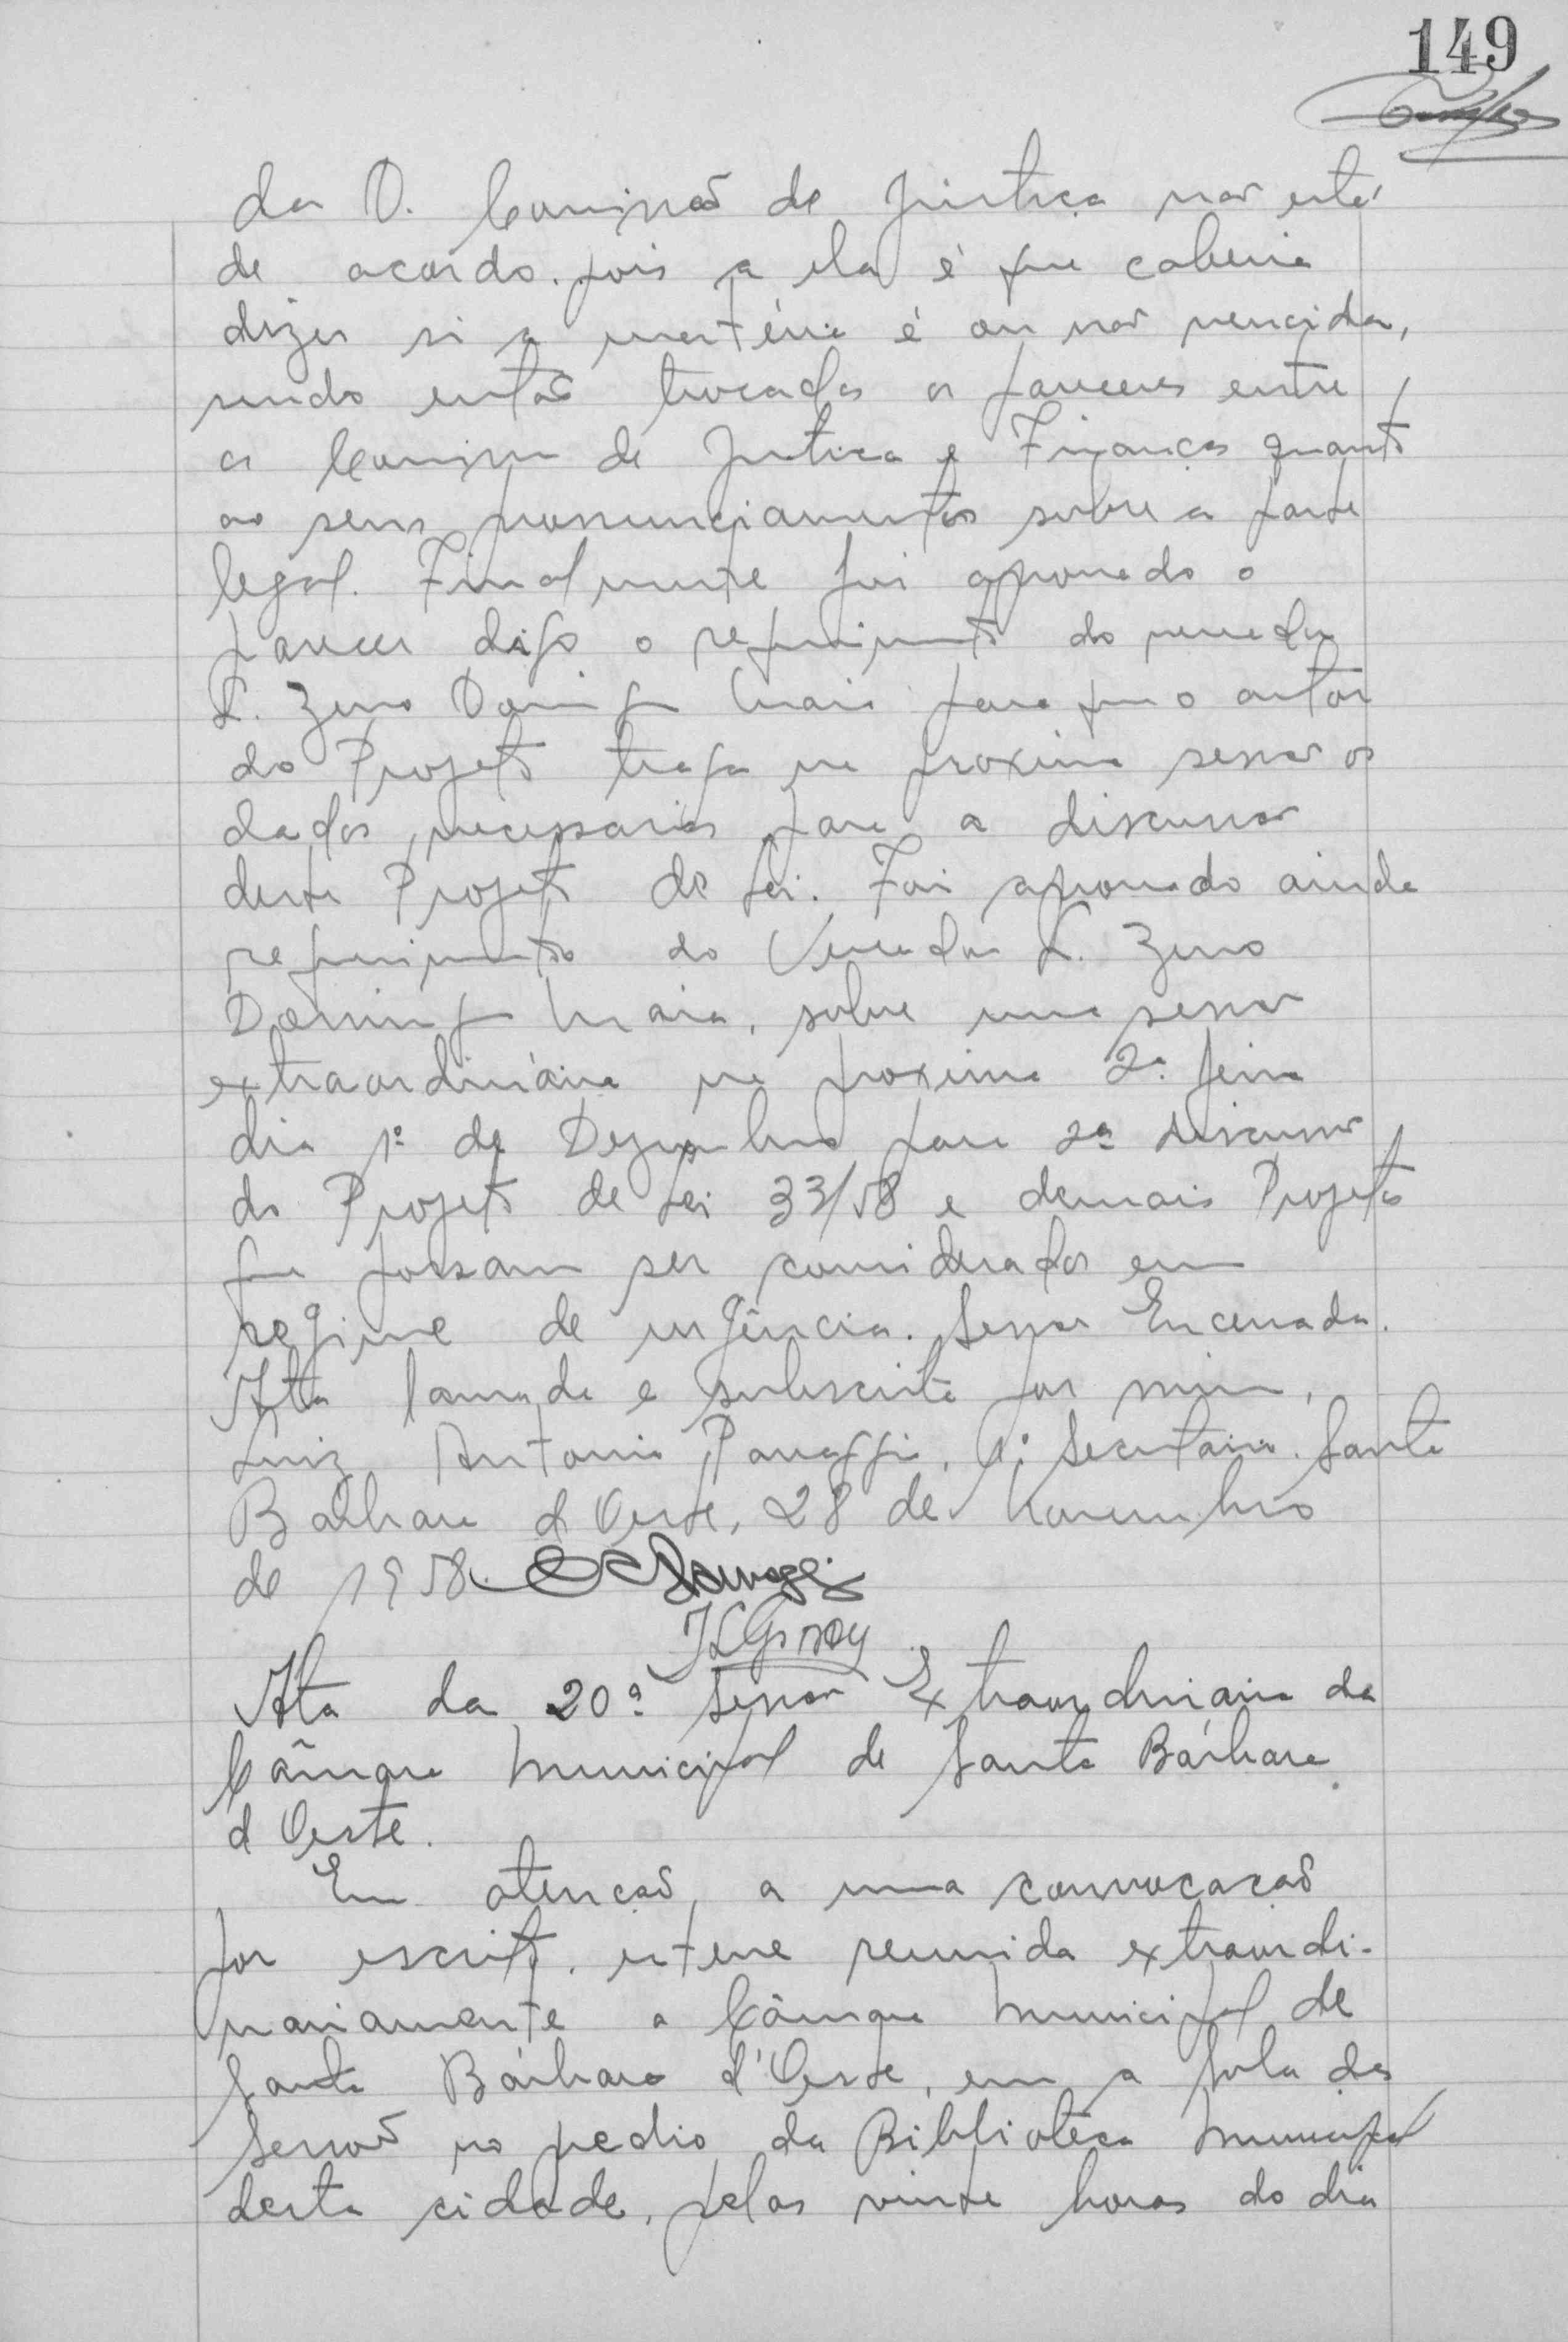 149
da D. Comissão de Justiça não está
de acordo. pois a ela é que caberia
dizer si a matéria é ou não vencida,
sendo então trocados os pareceres entre
as Comissões de Justiça e Finanças quanto
ao seus pronunciamentos sobre a parte
legal. Finalmente foi aprovado o
parecer digo o requerimento do vereador
L. Zeno Domingues Maia para que o autor
do Projeto traga na proxima sessão os
dados necessarios para a discussão
deste Projeto de Lei. Foi aprovado ainda
requerimento do Vereador L. Zeno
Domingues Maia, sobre uma sessão
extraordinária na proxima 2a. feira
dia 1º de Dezembro para 2ª discussão
do Projeto de Lei 33/58 e demais Projetos
que possam ser considerados em
regime de urgência. Sessão Encerrada.
Ata lavrada e subscrita por mim,
Luiz Antonio Panaggi, 1º Secretario. Santa
Bárbara d Oeste, 28 de Novembro
de 1958.
Ata da 20ª Sessão Extraordinária da
Câmara Municipal de Santa Bárbara
d Oeste.
Em atenção, a uma convocação
por escrito, esteve reunida extraordi-
nariamente a Câmara Municipal de
Santa Bárbara d'Oeste, em a sala das
Sessões no predio da Biblioteca Municipal
desta cidade, pelas vinte horas do dia